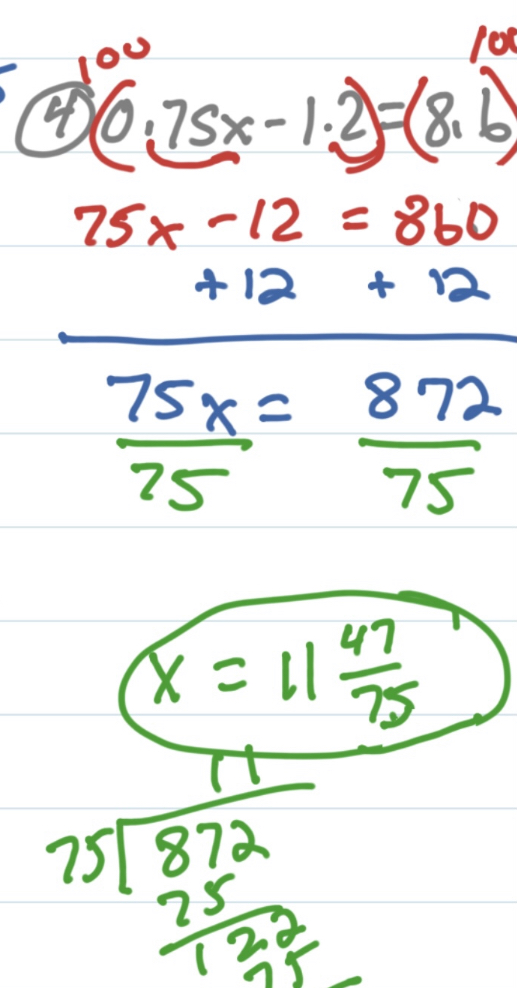 5 100 100
④ (0.75x - 1.2) = (8.6)
75x - 12 = 860
+12 + 12
75x = 872
75 75
x = 11 47/75
11
75 872
75
122
75